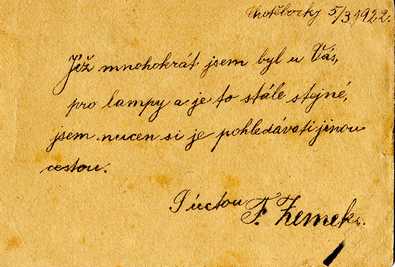 5/3 1922.
Již mnohokrát jsem byl u Vás,
pro lampy a je to stále stejné,
jsem nucen si je pohledávati jinou
cestou.
S úctou F. Zemek